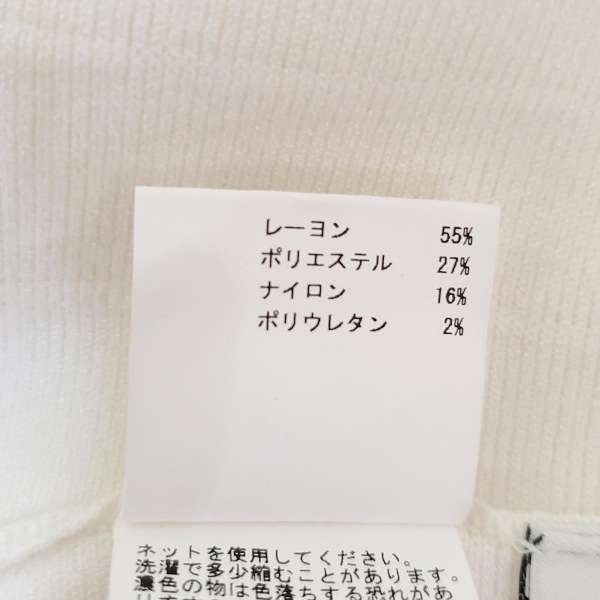 レーヨン 55%
ポリエステル 27%
ナイロン 16%
ポリウレタン 2%
ネットを使用してください。
洗濯で多少縮むことがあります。
濃色の物は色落ちする恐れがあ